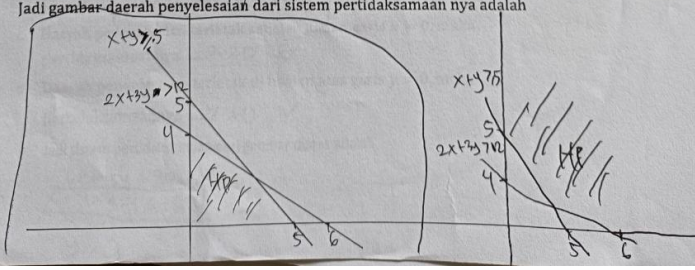 Jadi gambar daerah penyelesaian dari sistem pertidaksamaan nya adalah
x+y≥5
2x+3y >12
5
4
HP
5 6
x+y≥5
5
2x+3y≥12
4
HP
5 6